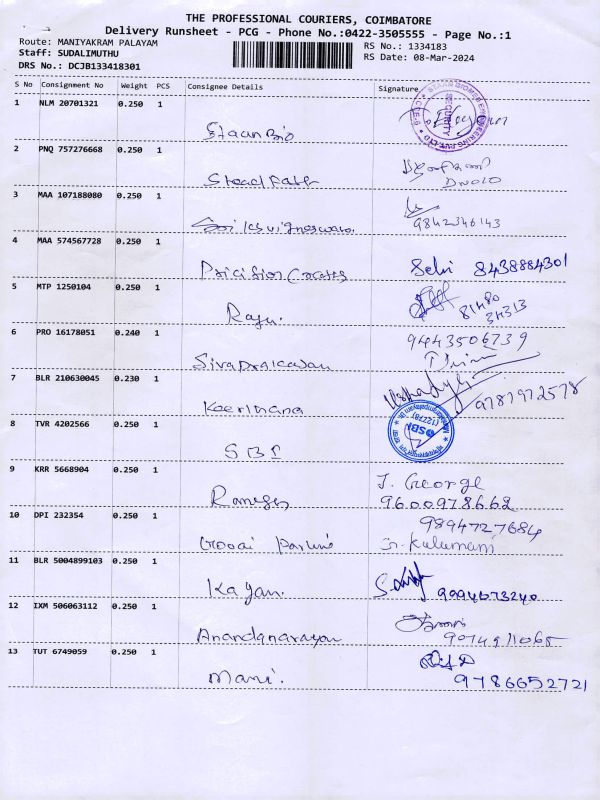 THE PROFESSIONAL COURIERS, COIMBATORE
Delivery Runsheet - PCG - Phone No.:0422-3505555 - Page No.:1
Route: MANIYAKRAM PALAYAM
Staff: SUDALIMUTHU
DRS No.: DCJB133418301
RS No.: 1334183
RS Date: 08-Mar-2024
S No Consignment No Weight PCS Consignee Details Signature
1 NLM 20701321 0.250 1
Staan Bio
2 PNQ 757276668 0.250 1
Steadfast
3 MAA 107188080 0.250 1
Sri Ksvigneswara 9842346143
4 MAA 574567728 0.250 1
Pricision Creates Selvi 8438884301
5 MTP 1250104 0.250 1
Raju. 81480 34313
6 PRO 16178051 0.240 1 9443506739
Sivaprakasam
7 BLR 210630045 0.230 1
Keerthana 9787972578
8 TVR 4202566 0.250 1
SBI
9 KRR 5668904 0.250 1 J. George
Ramesh 9600978662
10 DPI 232354 0.250 1 9894727684
11 BLR 5004899103 0.250 1
Kayan. 9994073240
12 IXM 506063112 0.250 1
Anandanarayan
13 TUT 6749059 0.250 1
Mani. 9786652721